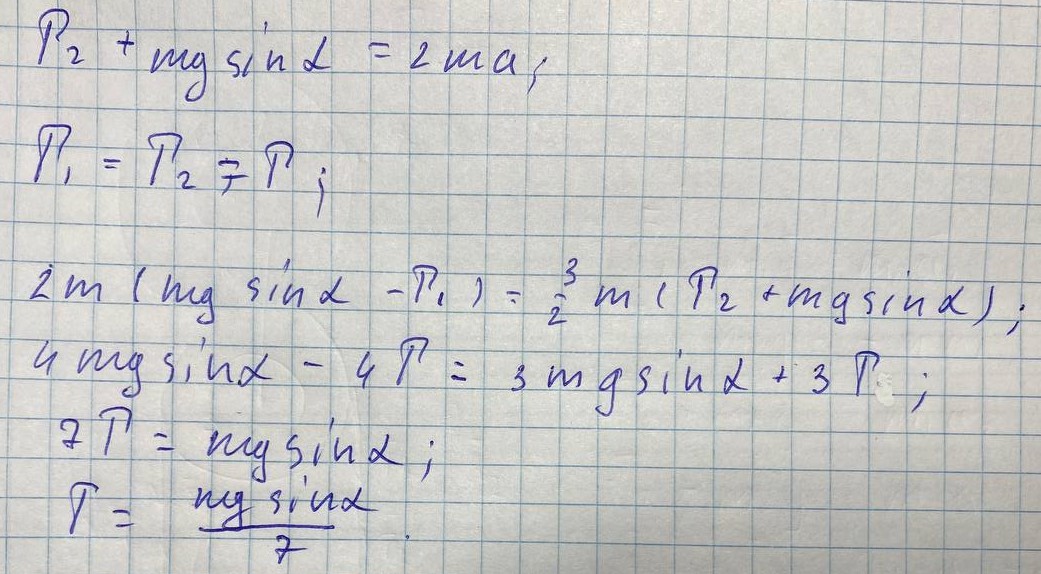 T₂ + mg sin α = 2ma;
T₁ = T₂ = T;
2m (mg sin α - T₁) = 3/2 m (T₂ + mg sin α);
4 mg sin α - 4T = 3 mg sin α + 3T;
7T = mg sin α;
T = mg sin α / 7.